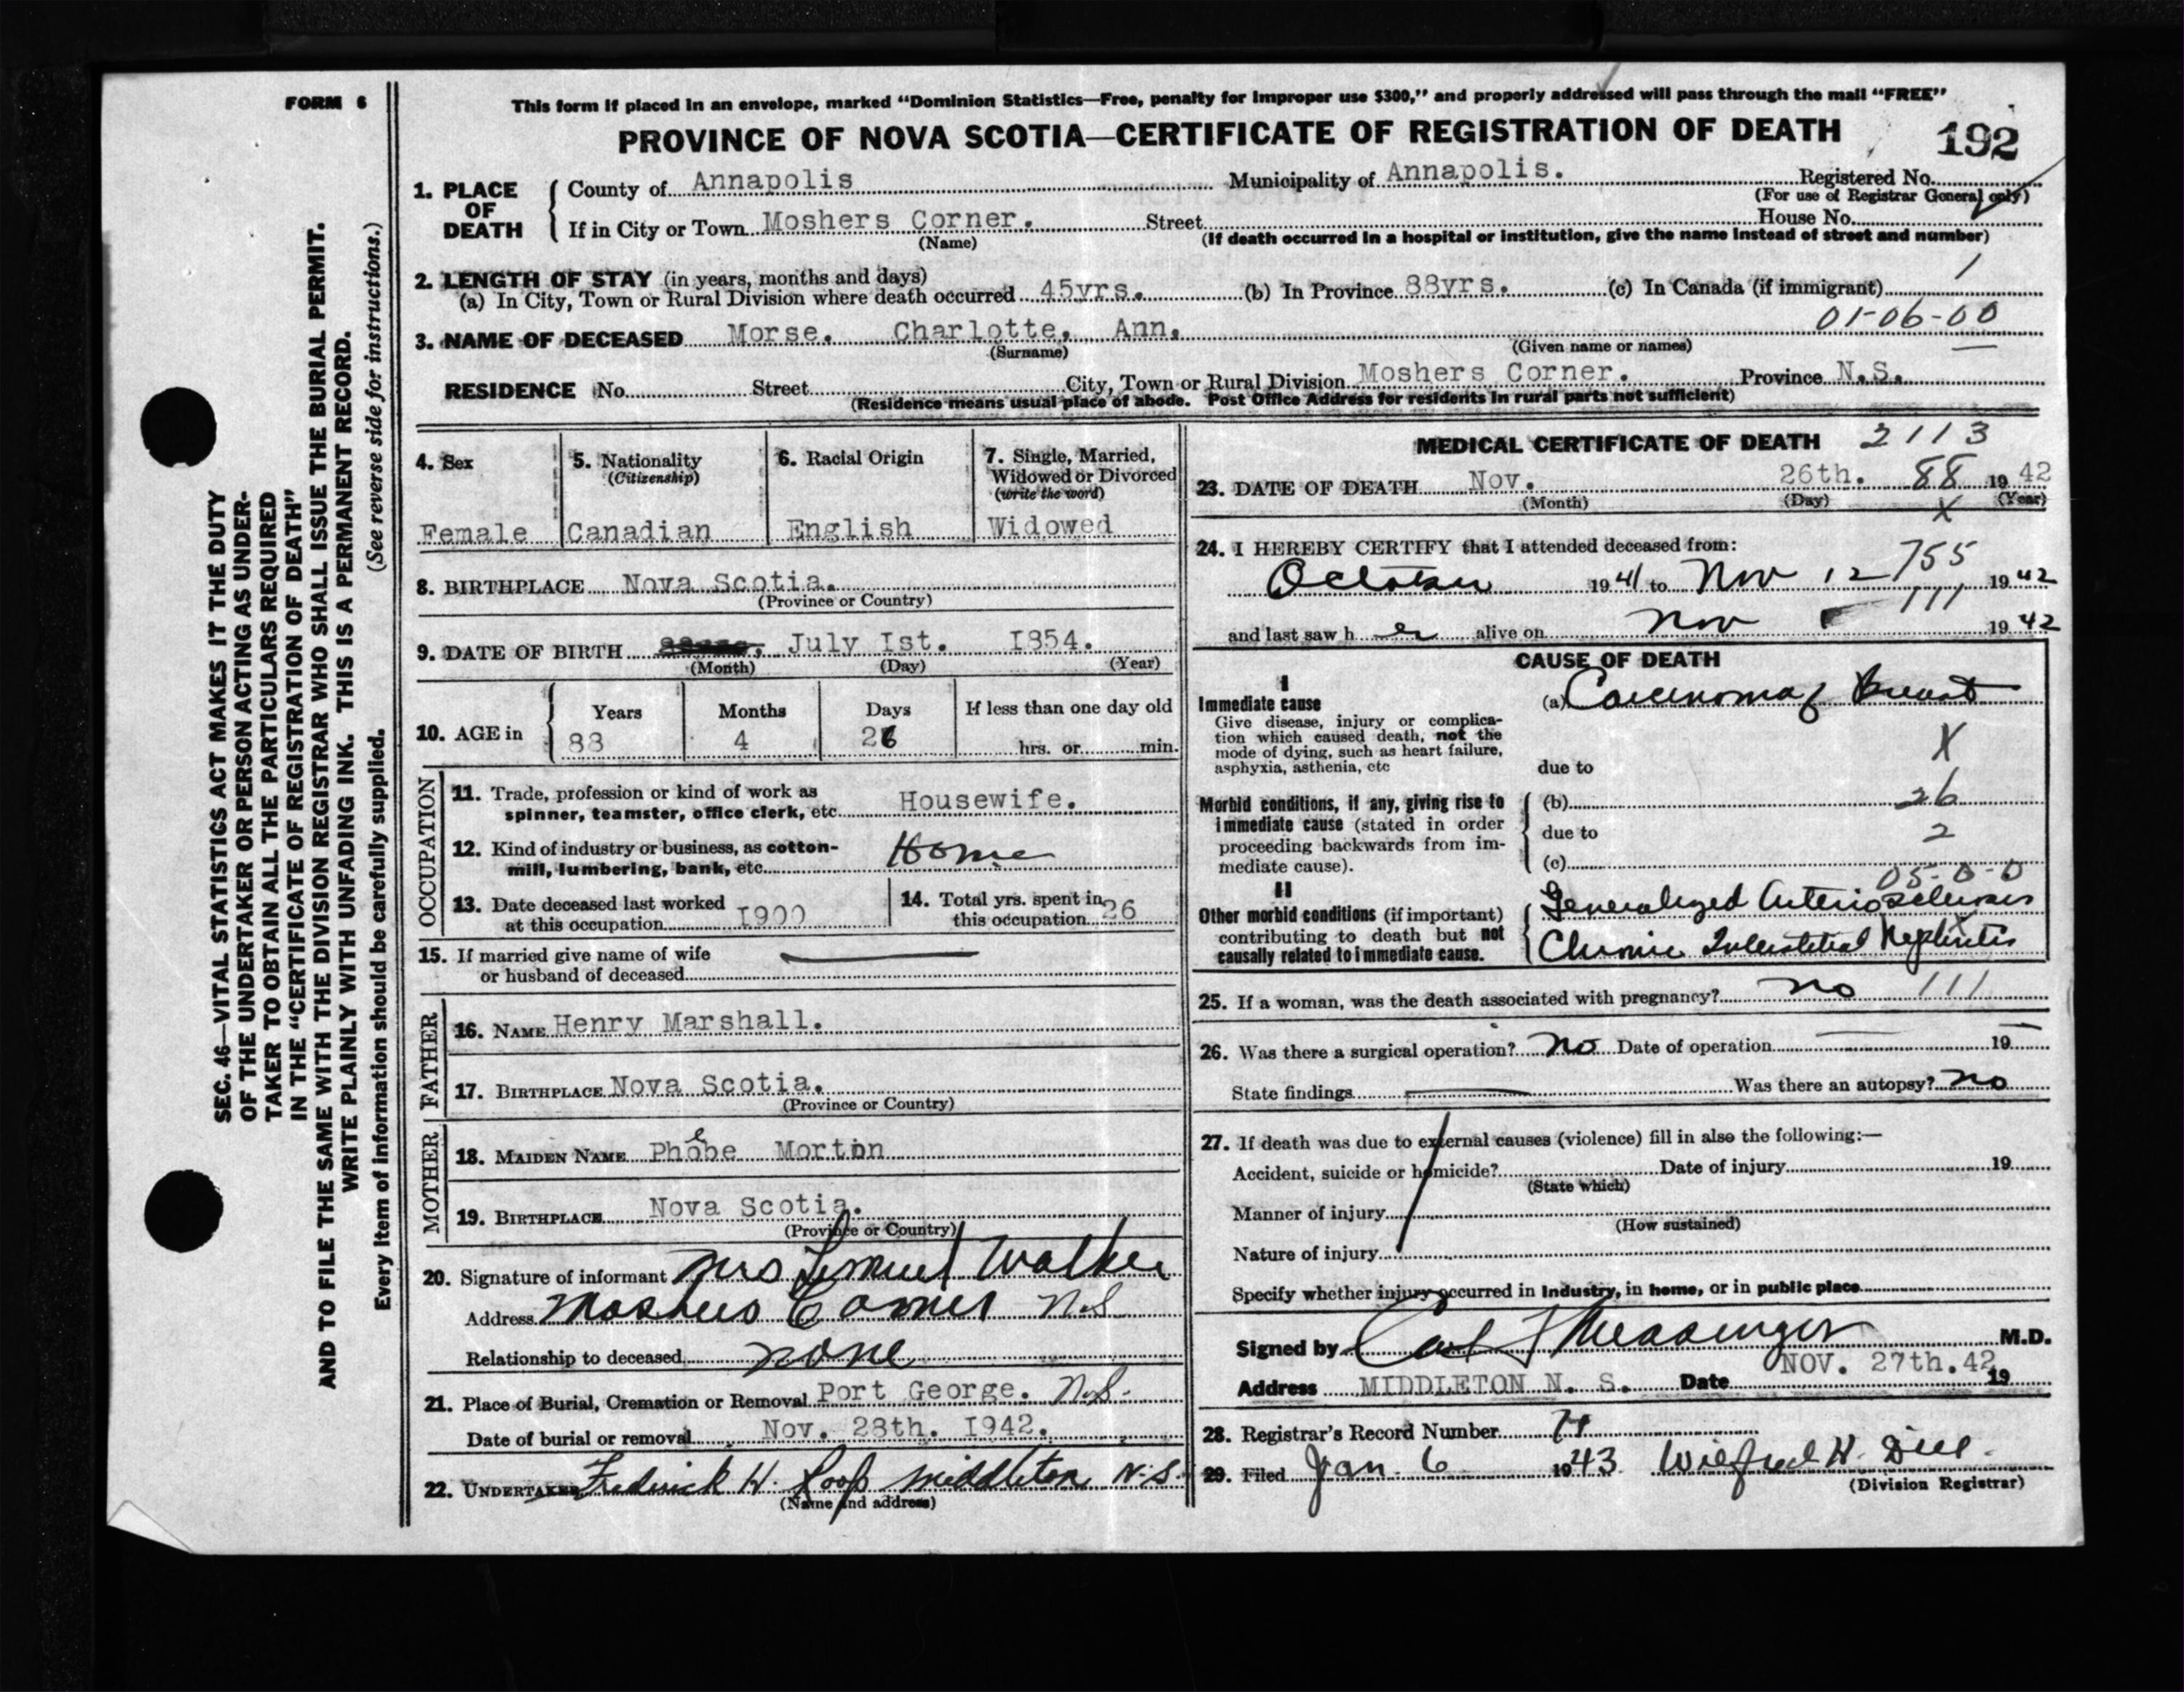 FORM 6
This form if placed in an envelope, marked "Dominion Statistics—Free, penalty for improper use $300," and properly addressed will pass through the mail "FREE"
PROVINCE OF NOVA SCOTIA—CERTIFICATE OF REGISTRATION OF DEATH
192
1. PLACE OF DEATH
County of Annapolis Municipality of Annapolis. Registered No.
(For use of Registrar General only)
If in City or Town Moshers Corner. Street House No.
(Name) (If death occurred in a hospital or institution, give the name instead of street and number)
2. LENGTH OF STAY (in years, months and days)
(a) In City, Town or Rural Division where death occurred 45yrs. (b) In Province 88yrs. (c) In Canada (if immigrant)
01-06-00
3. NAME OF DECEASED Morse. Charlotte, Ann.
(Surname) (Given name or names)
RESIDENCE No. Street City, Town or Rural Division Moshers Corner. Province N.S.
(Residence means usual place of abode. Post Office Address for residents in rural parts not sufficient)
4. Sex
Female
5. Nationality
(Citizenship)
Canadian
6. Racial Origin
English
7. Single, Married,
Widowed or Divorced
(write the word)
Widowed
8. BIRTHPLACE Nova Scotia.
(Province or Country)
9. DATE OF BIRTH July Ist. I854.
(Month) (Day) (Year)
10. AGE in
Years Months Days If less than one day old
88 4 26 hrs. or min.
OCCUPATION
11. Trade, profession or kind of work as
spinner, teamster, office clerk, etc. Housewife.
12. Kind of industry or business, as cotton-
mill, lumbering, bank, etc. Home
13. Date deceased last worked
at this occupation I900
14. Total yrs. spent in
this occupation 26
15. If married give name of wife
or husband of deceased
FATHER
16. NAME Henry Marshall.
17. BIRTHPLACE Nova Scotia.
(Province or Country)
MOTHER
18. MAIDEN NAME Phebe Morton
19. BIRTHPLACE Nova Scotia.
(Province or Country)
20. Signature of informant Mrs Lemuel Walker
Address Moshers Corner N.S
Relationship to deceased none
21. Place of Burial, Cremation or Removal Port George. N.S.
Date of burial or removal Nov. 28th. I942.
22. UNDERTAKER Frederick H. Roop Middleton N.S.
(Name and address)
MEDICAL CERTIFICATE OF DEATH 2113
23. DATE OF DEATH Nov. 26th. 88 19 42
(Month) (Day) (Year)
X
24. I HEREBY CERTIFY that I attended deceased from:
755
October 1941 to Nov 12 1942
111
and last saw her alive on Nov 1942
CAUSE OF DEATH
I
Immediate cause
Give disease, injury or complica-
tion which caused death, not the
mode of dying, such as heart failure,
asphyxia, asthenia, etc
(a) Carcinoma of Breast
X
due to
Morbid conditions, if any, giving rise to
immediate cause (stated in order
proceeding backwards from im-
mediate cause).
(b) 26
due to 2
(c)
05-0-0
II
Other morbid conditions (if important)
contributing to death but not
causally related to immediate cause.
Generalized Arteriosclerosis
Chronic Interstitial Nephritis
25. If a woman, was the death associated with pregnancy? no 111
26. Was there a surgical operation? No Date of operation 19
State findings Was there an autopsy? no
27. If death was due to external causes (violence) fill in also the following:—
Accident, suicide or homicide? Date of injury 19
(State which)
Manner of injury
(How sustained)
Nature of injury
Specify whether injury occurred in industry, in home, or in public place
Signed by Messenger M.D.
Address MIDDLETON N. S. Date NOV. 27th. 42 19
28. Registrar's Record Number
29. Filed Jan. 6 1943 Wilfred H. Dill
(Division Registrar)
SEC. 46—VITAL STATISTICS ACT MAKES IT THE DUTY
OF THE UNDERTAKER OR PERSON ACTING AS UNDER-
TAKER TO OBTAIN ALL THE PARTICULARS REQUIRED
IN THE "CERTIFICATE OF REGISTRATION OF DEATH"
AND TO FILE THE SAME WITH THE DIVISION REGISTRAR WHO SHALL ISSUE THE BURIAL PERMIT.
WRITE PLAINLY WITH UNFADING INK. THIS IS A PERMANENT RECORD.
(See reverse side for instructions.)
Every item of information should be carefully supplied.